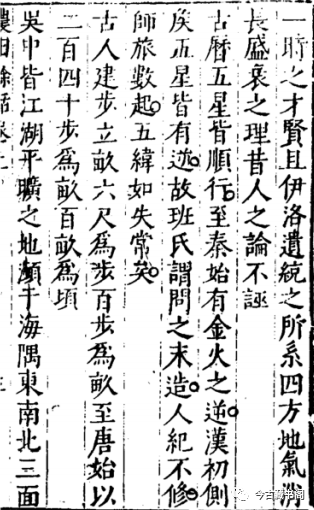 一時之才賢且伊洛遺統之所系四方地氣消
長盛衰之理昔人之論不誣
古曆五星皆順行。至秦始有金火之逆。漢初側
矦五星皆有逆。故班氏謂周之末造。人紀不修。
師旅數起。五緯如失常矣。
古人建步立畝六尺爲步百步爲畝至唐始以
二百四十步爲畝百畝爲頃
吳中皆江湖平曠之地瀕于海隅東南北三面
田餘話卷上
今古藏书阁